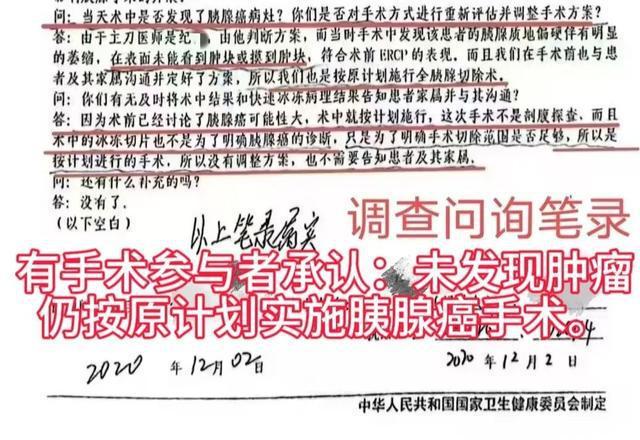 问：当天术中是否发现了胰腺癌病灶？你们是否对手术方式进行重新评估并调整手术方案？
答：由于主刀医师是纪 由他判断方案，而当时手术中发现该患者的胰腺质地偏硬伴有明显
的萎缩，在表面未能看到肿块或摸到肿块，符合术前ERCP的表现。而且我们在手术前也与患
者及其家属沟通并定好了方案，所以我们也是按原计划施行全胰腺切除术。
问：你们有无及时将术中结果和快速冰冻病理结果告知患者家属并与其沟通？
答：因为术前已经讨论了胰腺癌可能性大，术中就按计划施行，这次手术不是剖腹探查，而且
术中的冰冻切片也不是为了明确胰腺癌的诊断，只是为了明确手术切除范围是否足够，所以是
按计划进行的手术，所以没有调整方案，也不需要告知患者及其家属。
问：还有什么补充的吗？
答：没有了。
（以下空白）
以上笔录属实
调查问询笔录
有手术参与者承认：未发现肿瘤
仍按原计划实施胰腺癌手术。
2020 年12月02日
2020 年12月2日
中华人民共和国国家卫生健康委员会制定